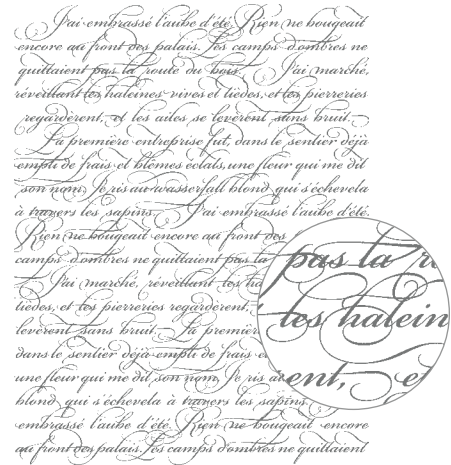 J'ai embrassé l'aube d'été. Rien ne bougeait
encore au front des palais. Les camps d'ombres ne
quittaient pas la route du bois. J'ai marché,
réveillant les haleines vives et tièdes, et les pierreries
regardèrent, et les ailes se levèrent sans bruit.
La première entreprise fut, dans le sentier déjà
empli de frais et blêmes éclats, une fleur qui me dit
son nom. Je ris au wasserfall blond qui s'échevela
à travers les sapins. J'ai embrassé l'aube d'été.
Rien ne bougeait encore au front des
palais
camps d'ombres ne quittaient pas la
J'ai marché, réveillant les ha
tièdes, et les pierreries regardèrent,
levèrent sans bruit. La premièr
dans le sentier déjà empli de frais e
une fleur qui me dit son nom. Je ris a
blond qui s'échevela à travers les sapins.
embrassé l'aube d'été. Rien ne bougeait encore
au front des palais. Les camps d'ombres ne quittaient
pas la r
les halein
ent, et